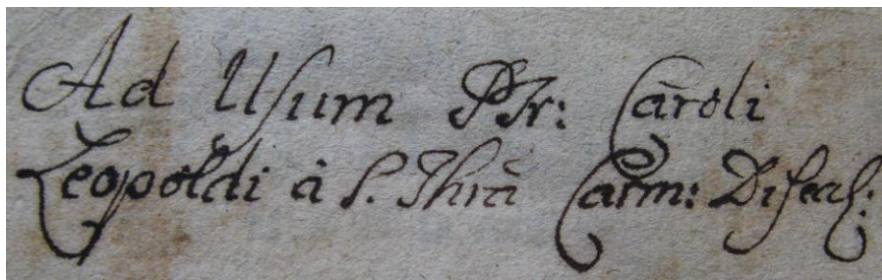 Ad Usum Pr: Caroli
Leopoldi à S. Thrã Carm: Discal: